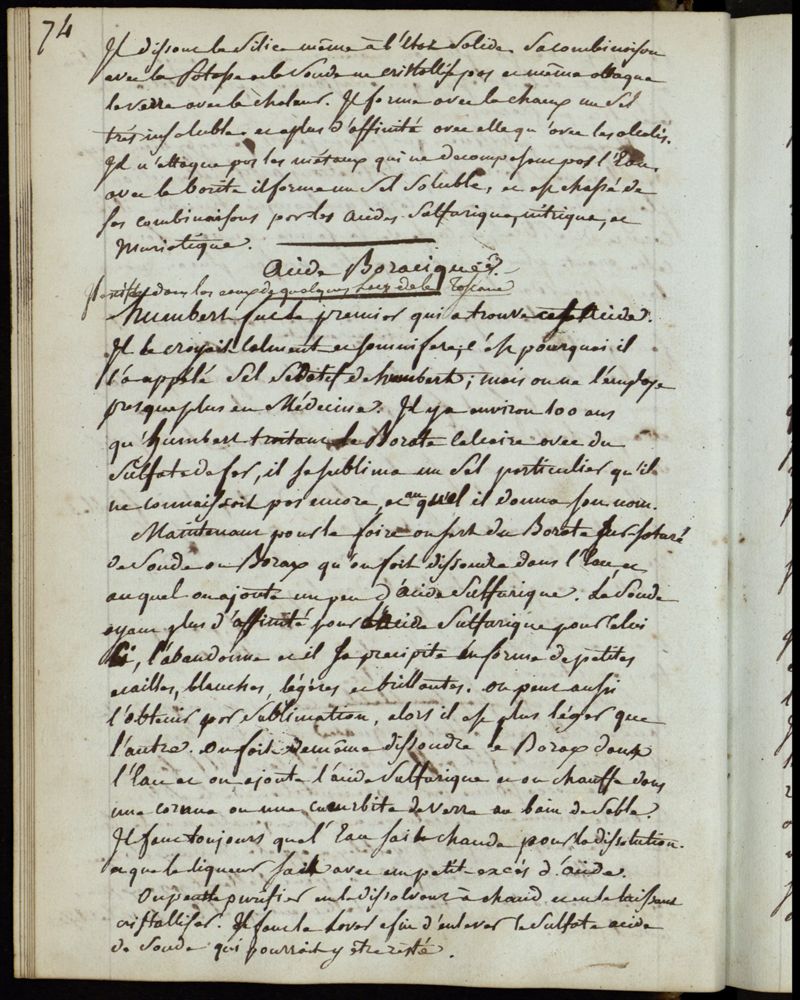 74
Il dissout la Silice même à l'état Solide. Sa combinaison
avec la Potasse et la Soude ne cristallise pas et même attaque
le verre avec la chaleur. Il forme avec la chaux un Sel
très insoluble et a plus d'affinité avec elle qu'avec les alcalis.
Il n'attaque pas les métaux qui ne decomposent pas l'Eau.
avec la barite il forme un Sel Soluble, et est chassé de
ses combinaisons par les acides Sulfurique, nitrique, et
Muriatique.
Acide Boracique.
Il existe dans les eaux de quelques lacs de la Toscane
humbert fut le premier qui a trouvé cet Acide.
Il le croyait calmant et somnifere, c'est pourquoi il
l'a appelé Sel Sedatif de humbert; mais on ne l'employe
presque plus en Médecine. Il y a environ 100 ans
qu'humbert traitant le Borate calcaire avec du
Sulfate de fer, il se sublima un Sel particulier qu'il
ne connaissoit pas encore, et auquel il donna son nom.
Maintenant pour le faire on sert du Borate Sursaturé
de Soude ou Borax qu'on fait dissoudre dans l'Eau et
auquel on ajoute un peu d'acide Sulfurique. La Soude
ayant plus d'affinité pour l'Acide Sulfurique pour celui
Ci, l'abandonne et il se precipite en forme de petites
ecailles, blanches, légères et brillantes. On peut aussi
l'obtenir par Sublimation, alors il est plus léger que
l'autre. On fait de même dissoudre le Borax dans
l'Eau et on ajoute l'acide Sulfurique et on chauffe dans
une cornue ou une cucurbite de verre au bain de Sable.
Il faut toujours que l'Eau soit chaude pour la dissolution.
et que la liqueur soit avec un petit excès d'acide.
On peut le purifier en le dissolvant à chaud et en le laissant
cristalliser. Il faut le laver afin d'enlever le Sulfate acide
de Soude qui pourrait y être resté.